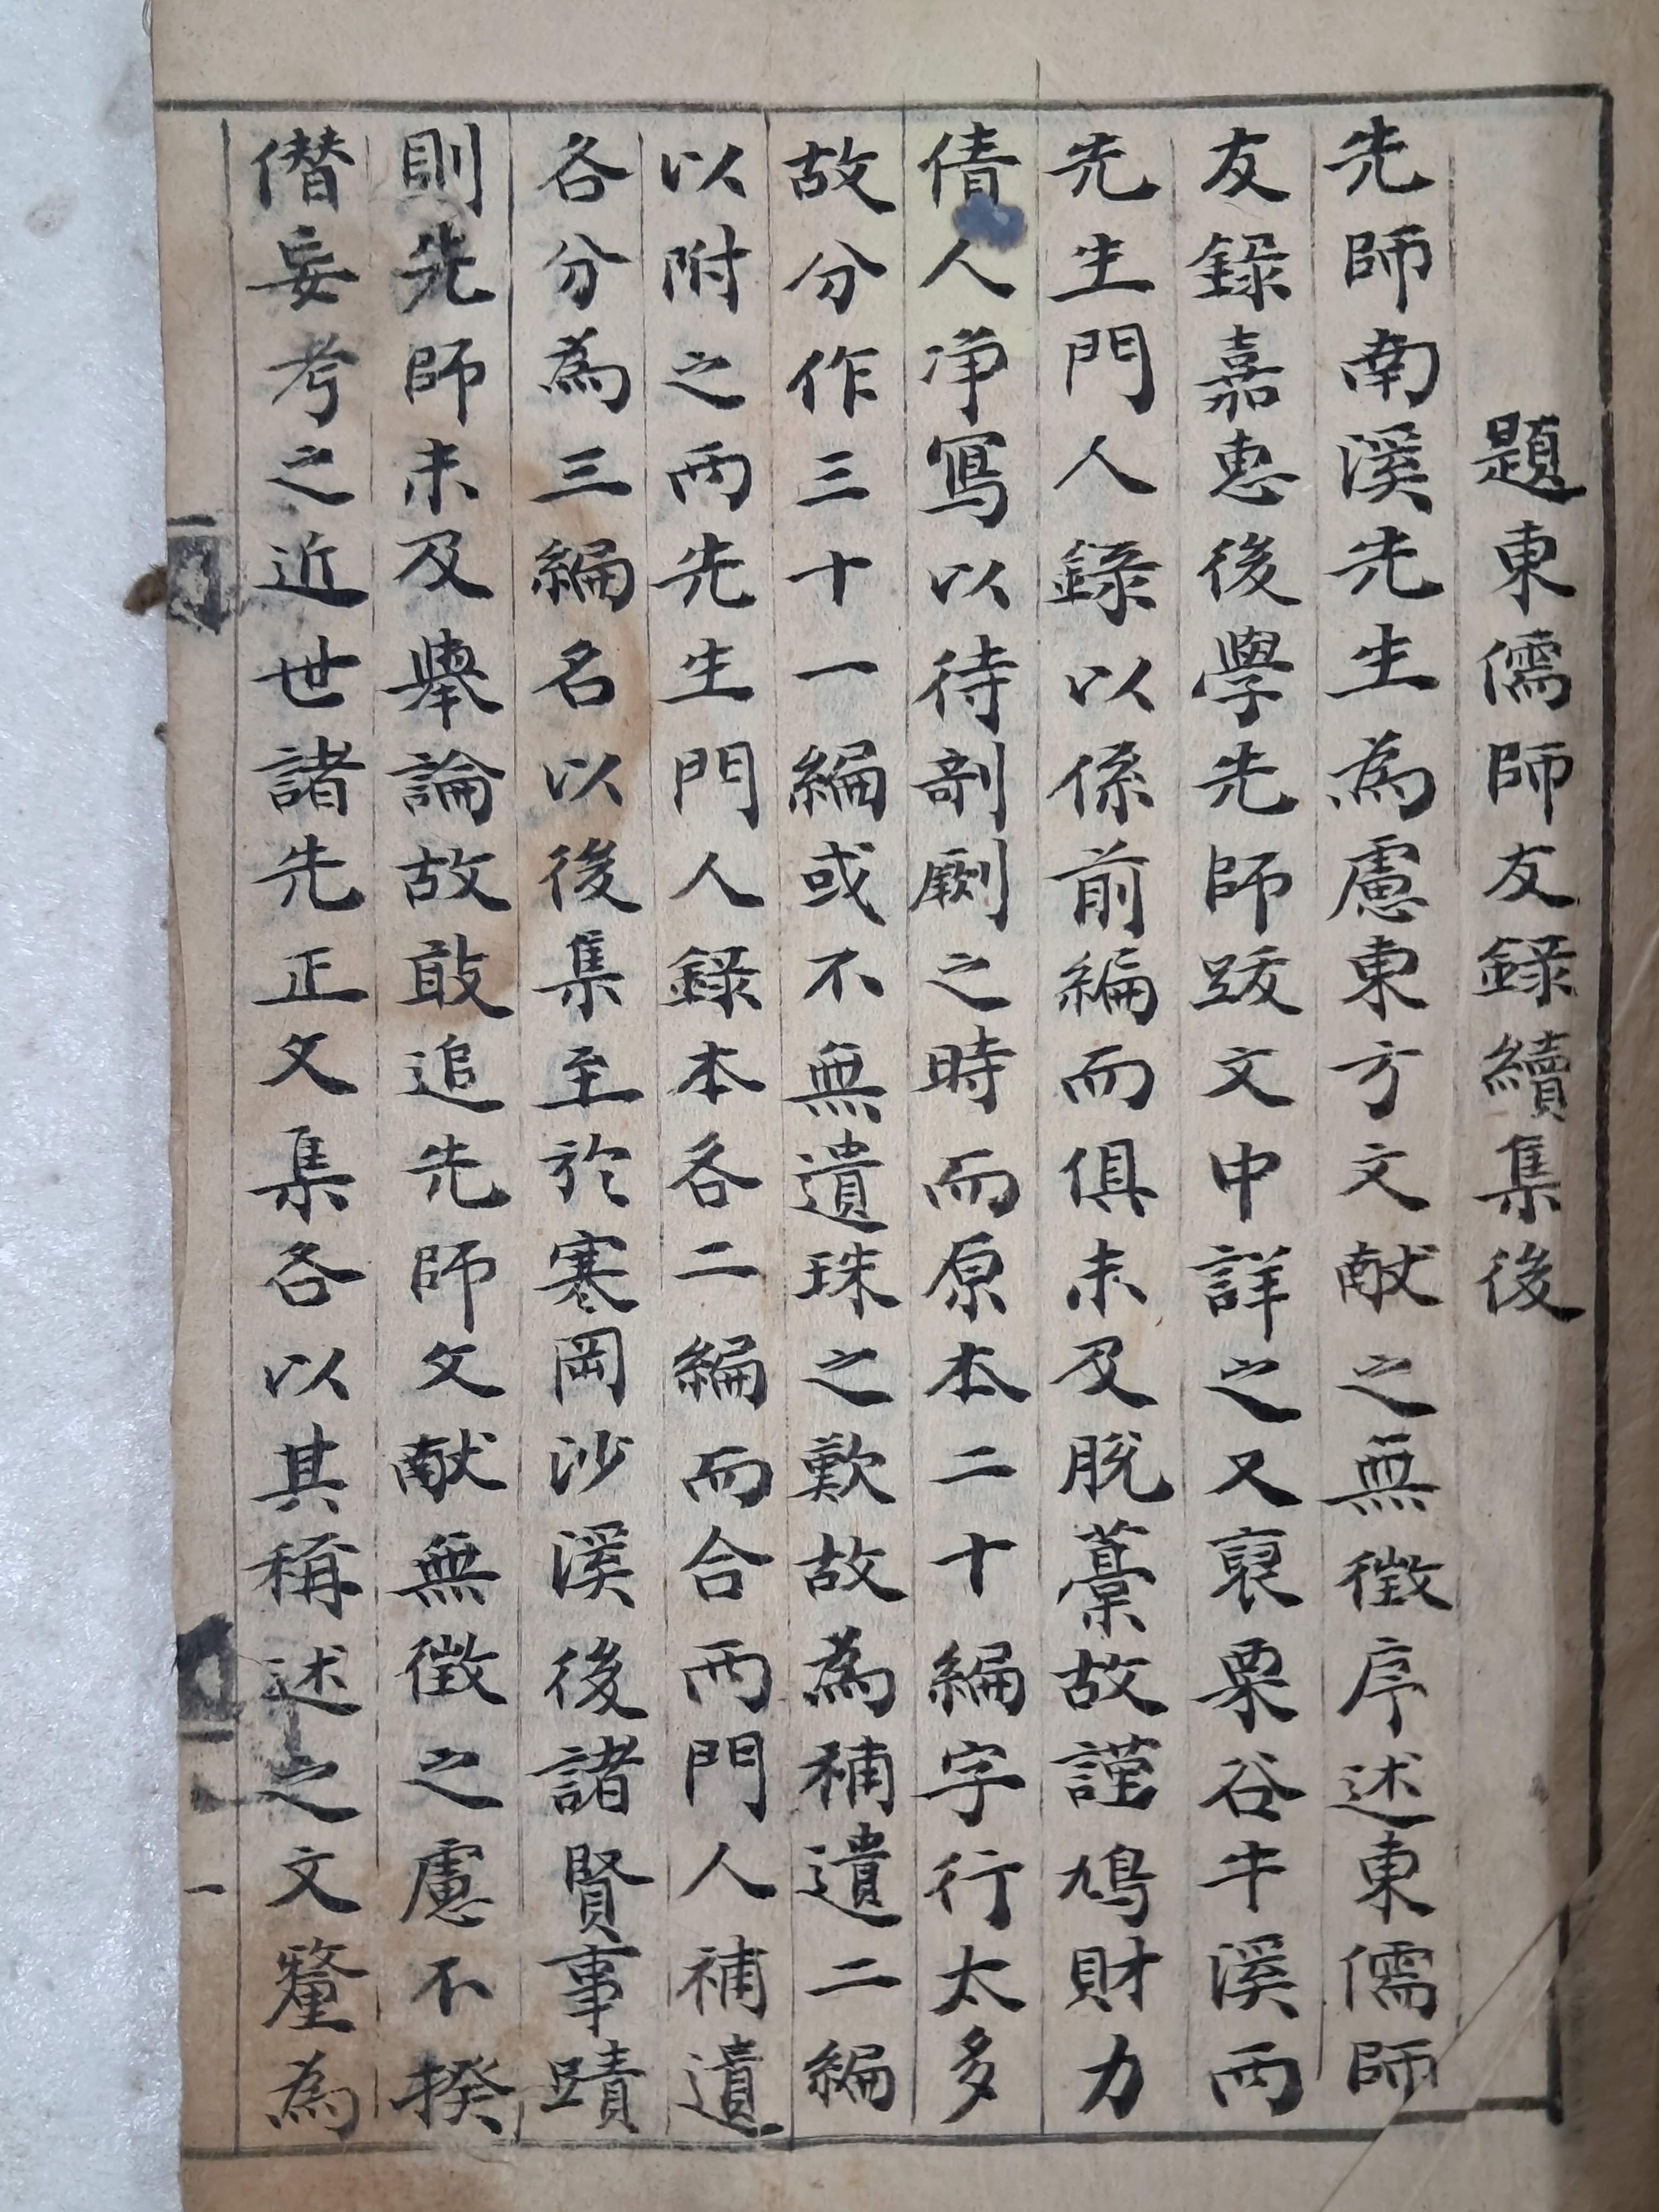 題東儒師友錄續集後
先師南溪先生為慮東方文献之無徵序述東儒師
友錄嘉惠後學先師跋文中詳之又裒栗谷牛溪兩
先生門人錄以係前編而俱未及脫藁故謹鳩財力
倩人净寫以待剞劂之時而原本二十編字行太多
故分作三十一編或不無遺珠之歎故為補遺二編
以附之兩先生門人錄本各二編而合兩門人補遺
各分為三編名以後集至於寒岡沙溪後諸賢事蹟
則先師未及擧論故敢追先師文献無徵之慮不揆
僭妄考之近世諸先正文集各以其稱述之文釐為
一